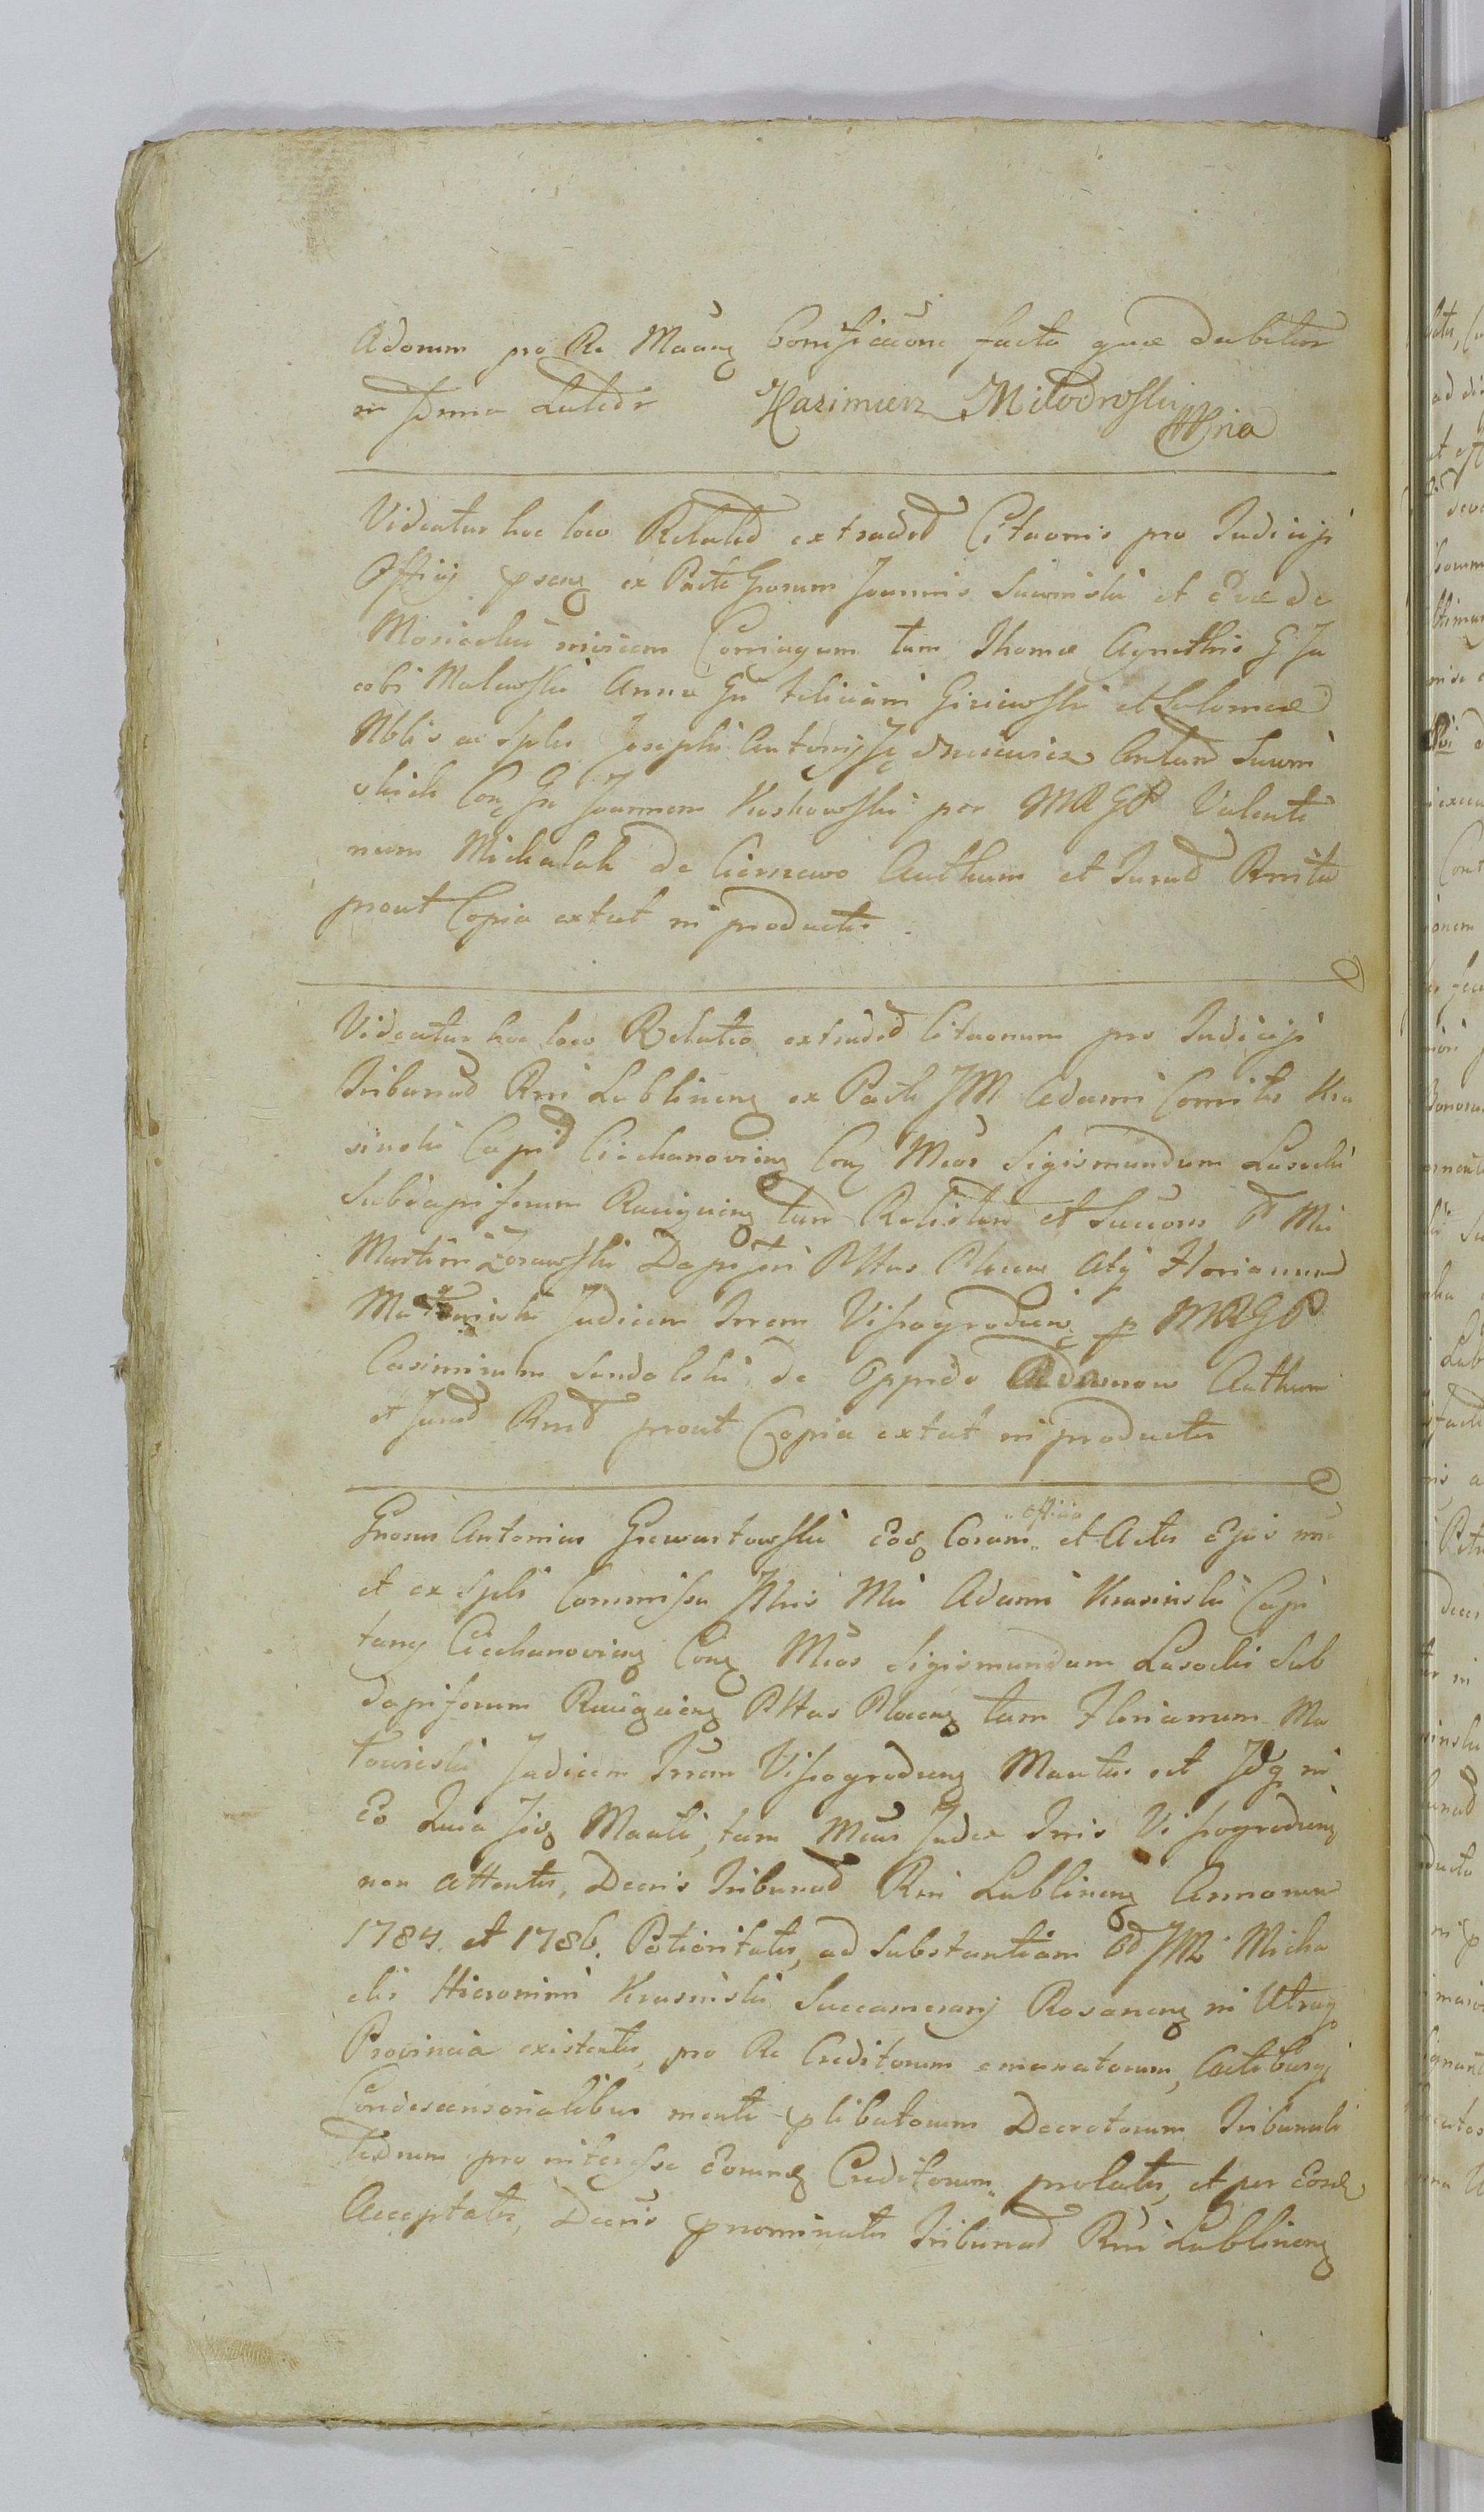 Adorum pro Re Maanɡ Bonificaõne facta quæ dabitur
in forma Kazimierz Miłodroski
Mria
Videatur hoc loco Relatio extradõ Citaõnis pro Judicijs
Officij pseng ex Parte Gnosorum Joannis Suwinski et Evæ de
Mosiczki Conjugum tum Thomæ Agnethis G Ja
cobi Malewski Anna Gn Feliciani Giziewski et Salomeæ
Nblis ac Splis Josephi Antonij Suwin
skich Con Gn Joannem Koskowski per MRGP Valenti
num Michalak de Ciemiewo Authum et Jurad Rnita
prout Copia extat in productis.
Videatur hoc loco Relatio extraded Citaonum pro Judicijs
Tribunad Rni Lublineng ex Parte JM Adami Comitis Kra
sinski Capid Ciechanovieng Cong Mcos Sigismundum Lasocki
Subdapiferum Raciązieng tum Relictam et Succores Od Mci
Martini Żorawski Dapiferi Pttus Plocens atq Florianum
Judicem Trrem Vissogrodiens p MRGP
Casimirum Sandalski de Oppido Adamow Authum
et Jurad Rnd prout Copia extat in productis
Gnosus Antonius Grewartowski Eoq Coram officio et Actis Ejus
et ex spli Commissa Illris Mci Adami Krasinski Capi
tanei Ciechanovieng Cong Mcos Sigismundum Lasocki Sub
dapiferum Raciązieng Pttus Ploceng tum Florianum Ma
kowieski Judicem Trrem Vissogrodieng Manctus est Idq in
Eo Quia Jisq Manti, tam Mcus Judex Trris Vissogrodieng
non attentis, Decris Tribunad Rni Lublineng Annorum
1784. et 1786. Potioritatis, ad Substantiam Od JM Micha
elis Hieronimi Krasinski Succamerarij Rosaneng in Utraq
Provincia existentis, pro Re Creditorum emanatorum, Actibusq
Condescensorialibus mente plibatorum Decretorum Tribunali
tiorum pro interesse Eorumq Creditorum prolatis, et per Eosd
Acceptatis, Decris pnominatis Tribunad Rni Lublineng